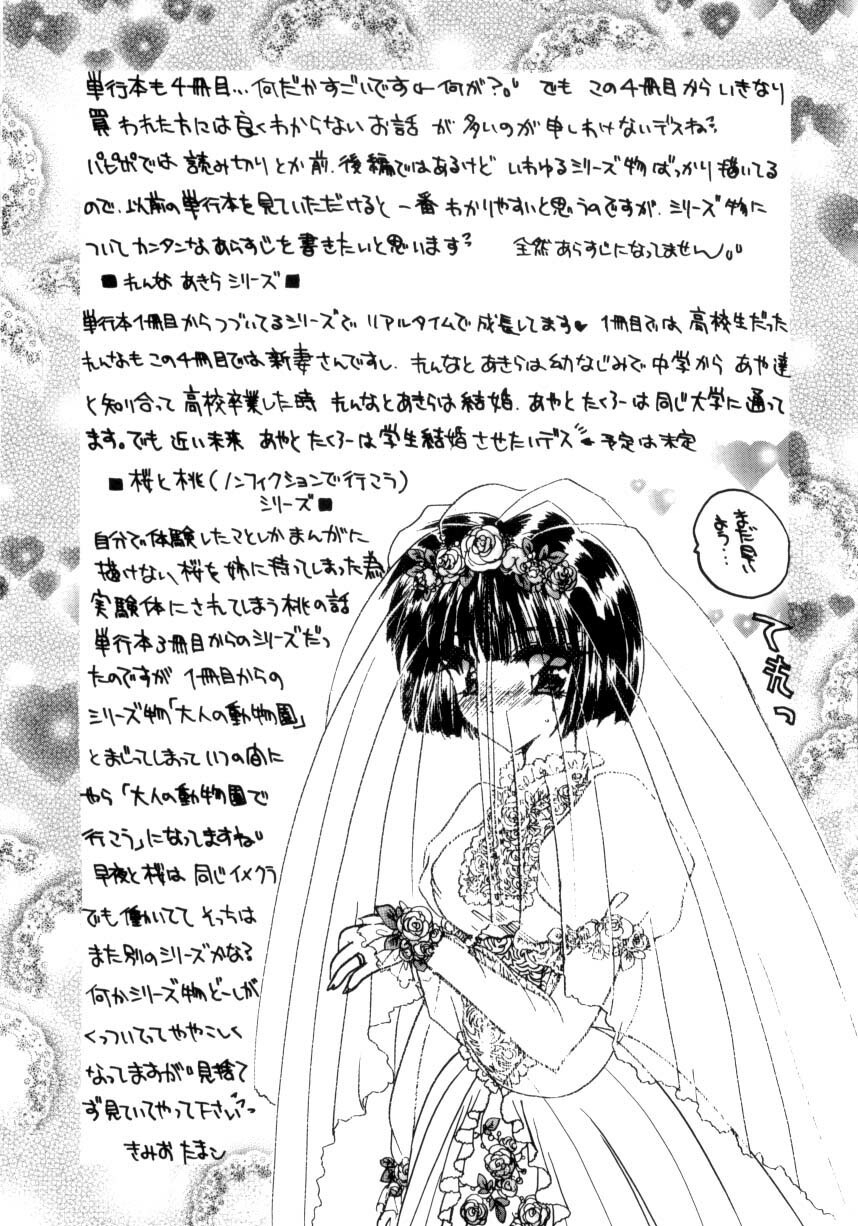 単行本も4冊目…何だかすごいです←何が?。 でも この4冊目から いきなり
買われた方には良くわからない お話 が 多いのが 申しわけないデスね
パピポでは 読み切りとか前.後編ではあるけど いわゆるシリーズ物 ばっかり描いてる
ので、以前の単行本を見ていただけると 一番 わかりやすいと思うのですが、シリーズ物に
ついてカンタンなあらすじを書きたいと思います 全然あらすじになってません。
■れんな あきら シリーズ■
単行本1冊目からつづいてるシリーズで リアルタイムで成長してます♥ 1冊目では 高校生だった
れんなもこの4冊目では新妻さんですし、れんなとあきらは幼なじみで中学から あや達
と知り合って 高校卒業した時 れんなとあきらは結婚、あやとたくろーは同じ大学に通って
ます。でも 近い未来 あやとたくろーは学生結婚させたいデス ←予定は未定
■ 桜と桃(ノンフィクションで行こう)
シリーズ■
自分で体験したことしかまんがに
描けない、桜を姉に持ってしまった為
実験体にされてしまう桃の話
単行本3冊目からのシリーズだっ
たのですが 1冊目からの
シリーズ物「大人の動物園」
とまじってしまって いつの間に
やら「大人の動物園で
行こう」になってますね。
早夜と桜は 同じイメクラ
でも働いてて そっちは
また別のシリーズかなる
何かシリーズ物どーしが
くっついてってややこしく
なってますが。見捨て
ず見ていてやって下さい
きみおたまこ
まだ早い
よう…
てれっ